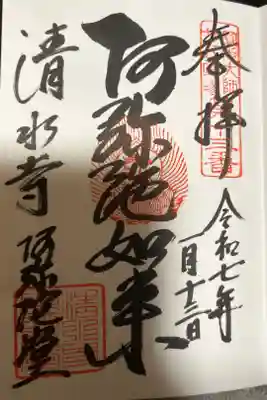 奉拝
令和七年
一月十三日
阿弥陀如来
清水寺
阿弥陀堂